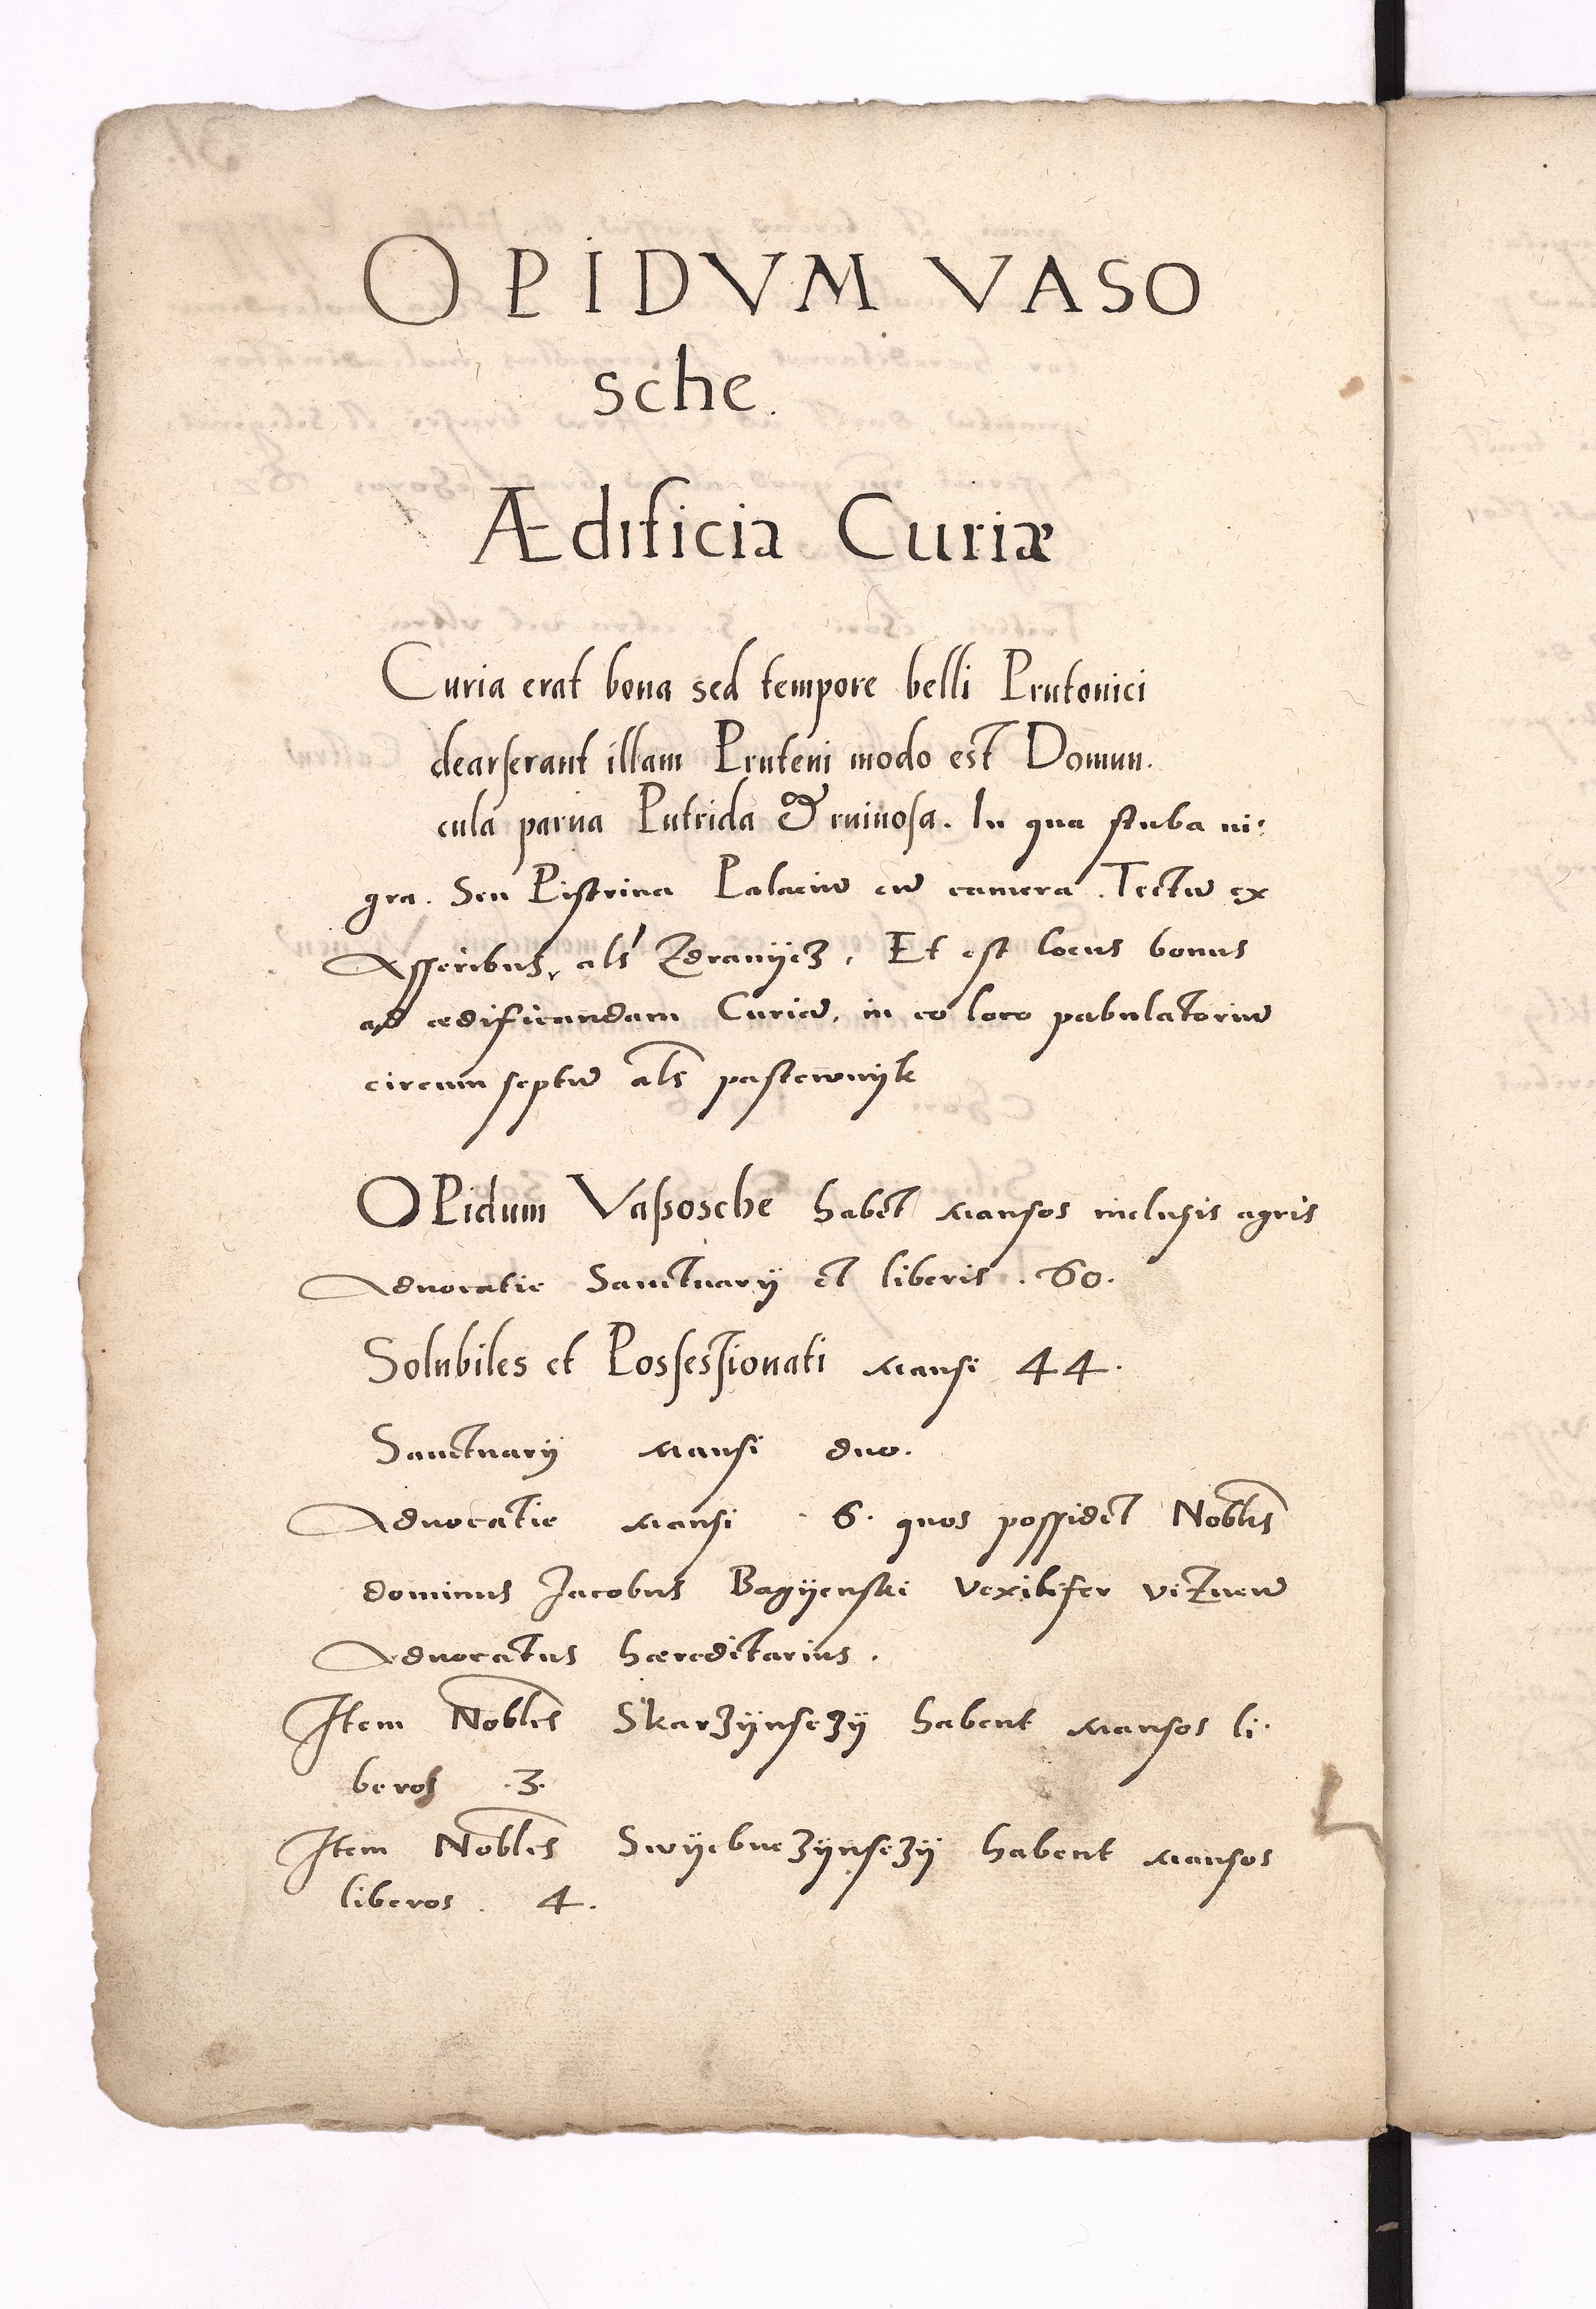 OPIDVM VASO
sche.
Ædificia Curiæ
Curia erat bona sed tempore belli Prutonici
dearserant illam Pruteni modo est Domun.
cula parua Putrida & ruinosa. In qua stuba ni:
gra. Seu Pistrina Palaciū cū camera. Tectū ex
Asseribus, als Zdranÿcz, Et est locus bonus
ad ædificandam Curiā, in eo loco pabulatoriū
circum septū als pastewnÿk
OPidum Vaßosche habet Mansos inclusis agris
Aduocatie Sanctuarÿ et liberis. 60.
Solubiles et Possessionati Mansi 44.
Sanctuarÿ Mansi duo.
Aduocatie Mansi 6. quos possidet Nobles
dominus Jacobus Bagÿenski vexilifer viznen̄
Aduocatus hæreditarius.
Item Nobles Skarzÿnsczÿ habent Mansos li.
beros .3.
Item Nobles Swÿebnezÿnsczÿ habent Mansos
liberos. 4.